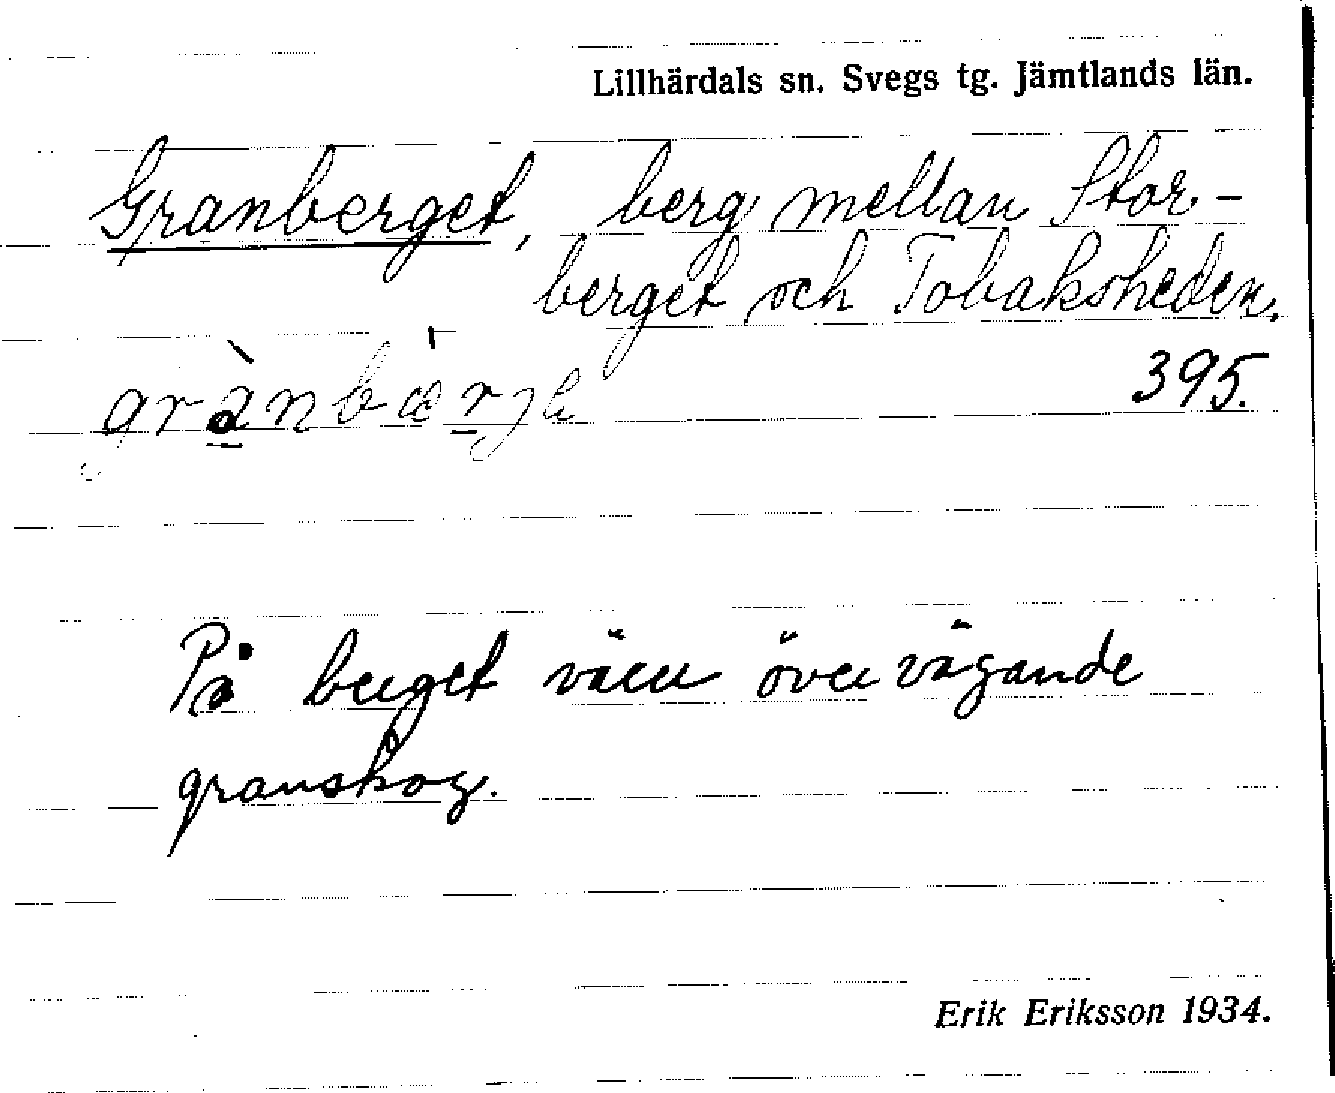 Lillhärdals sn. Svegs tg. Jämtlands län.
Granberget, berg mellan Stor-
berget och Tobaksheden.
395.
På berget växer övervägande
granskog.
Erik Eriksson 1934.